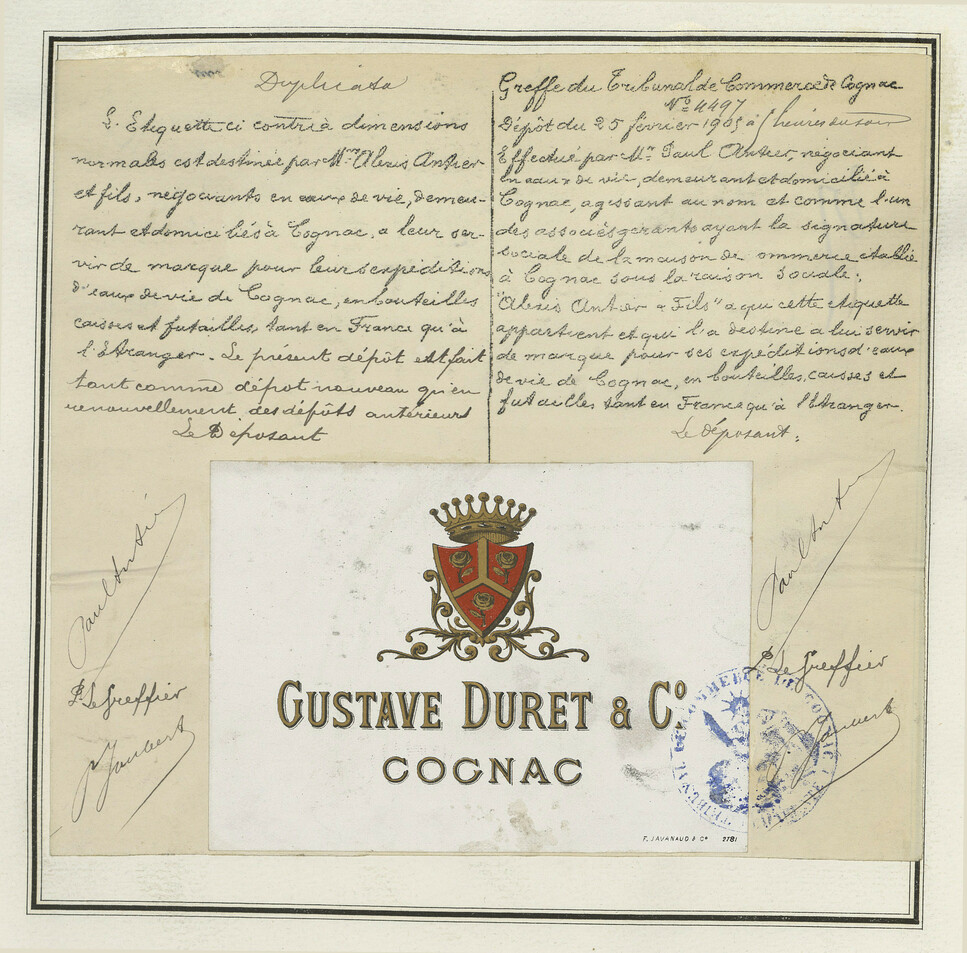 Duplicata
L'Etiquette ci contre à dimensions
normales est destinée par Mrs Alexis Antier
et fils, négociants en eaux de vie, demeu-
rant et domiciliés à Cognac, a leur ser-
vir de marque pour leurs expéditions
d'eaux de vie de Cognac, en bouteilles
caisses et futailles, tant en France qu'à
l'Etranger. Le présent dépôt est fait
tant comme dépot nouveau qu'en
renouvellement des dépôts antérieurs
Le Déposant
Paul Antier
P. Le Greffier
Joubert
Greffe du Tribunal de Commerce de Cognac
No 4497
Dépôt du 25 février 1905 à heures du soir
Effectué par Mr Paul Antier, négociant
en eaux de vie, demeurant et domicilié à
Cognac, agissant au nom et comme l'un
des associés gérants ayant la signature
sociale de la maison de ommerce établie
à Cognac sous la raison sociale:
"Alexis Antier & Fils" a qui cette etiquette
appartient et qui l'a destine a lui servir
de marque pour ses expéditions d'eaux
de vie de Cognac, en bouteilles, caisses et
futailles tant en France qu'à l'Etranger.
Le déposant:
Paul Antier
P. Le Greffier
Joubert
GUSTAVE DURET & Co
COGNAC
F. JAVANAUD & Co 2781
TRIBUNAL DE COMMERCE DE COGNAC